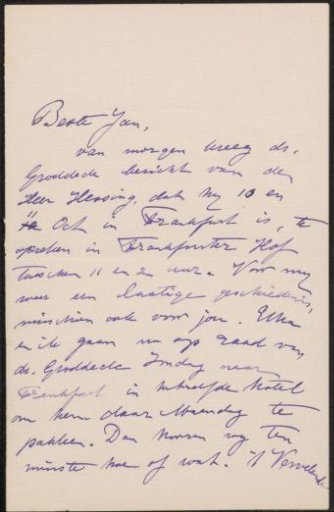 Beste Jan,
van morgen kreeg dr.
Groddeck bericht van den
Heer Hessing, dat hij 10 en
Oct in Frankfurt is, te
spreken in Frankfurter Hof
tusschen 11 en 12 uur. Voor mij
weer een lastige geschiedenis,
misschien ook voor jou. Elka
en ik gaan nu op raad van
dr. Groddeck Zondag naar
Frankfurt in hetzelfde Hotel
om hem daar Maandag te
pakken. Dan hooren wij ten
minste hoe of wat. 't Vervelende